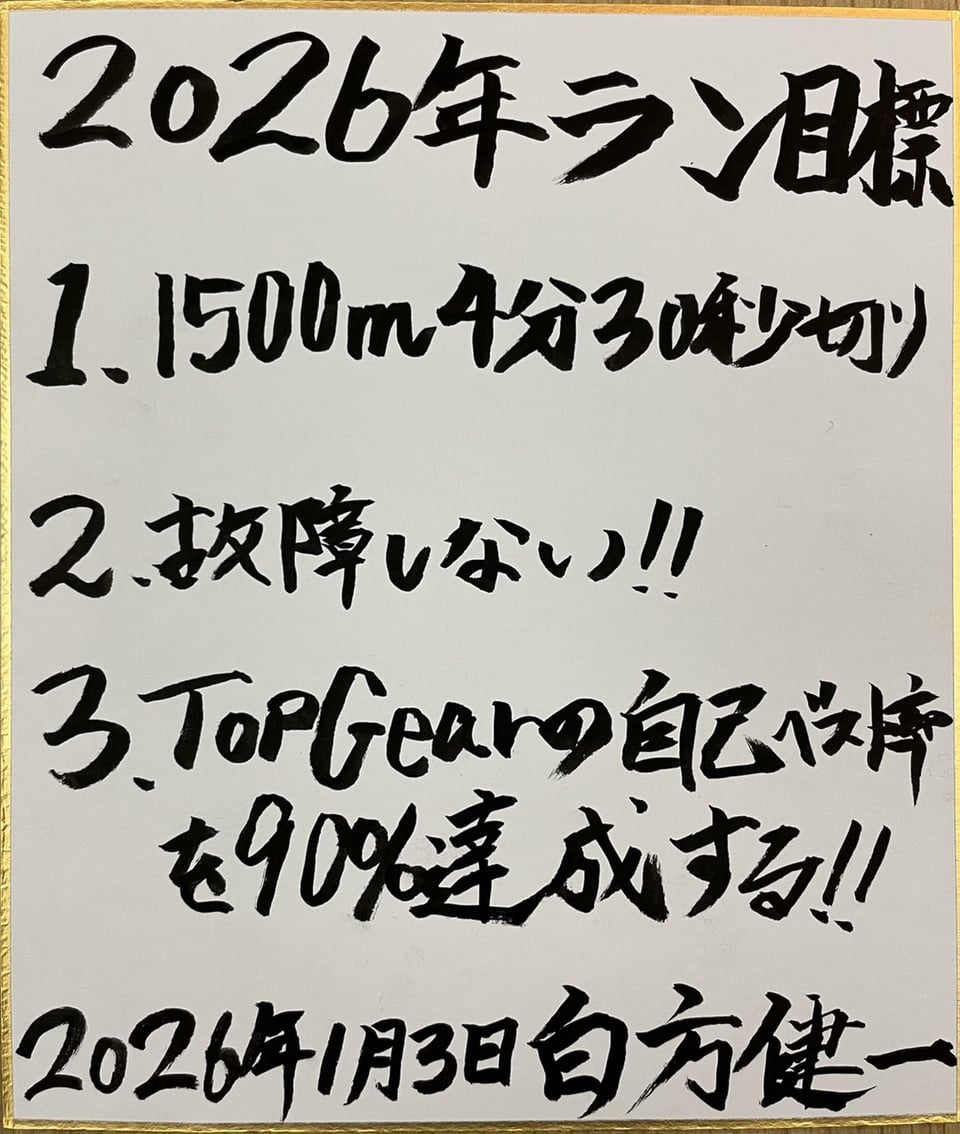 2026年ラン目標
1.1500m4分30秒切り
2.故障しない!!
3.TopGearの自己ベスト率
を90%達成する!!
2026年1月3日白方健一